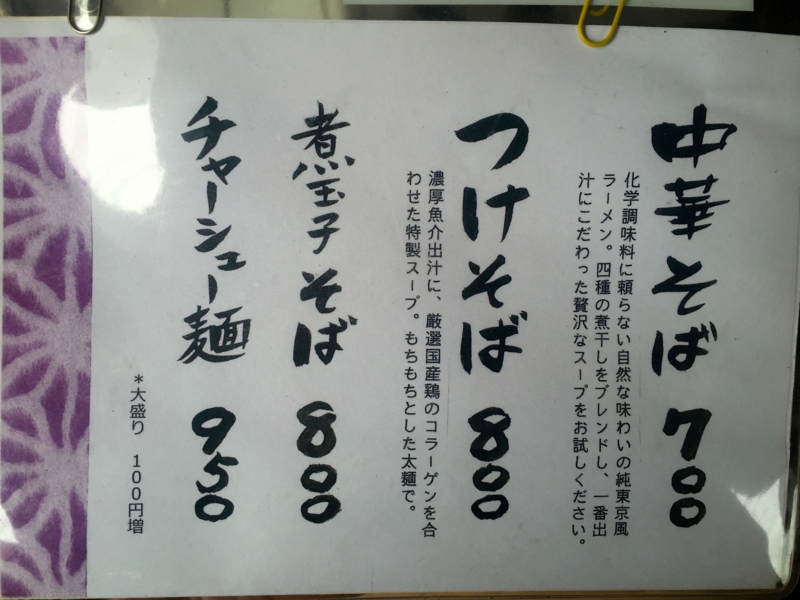 中華そば 700
化学調味料に頼らない自然な味わいの純東京風
ラーメン。四種の煮干しをブレンドし、一番出
汁にこだわった贅沢なスープをお試しください。
つけそば 800
濃厚魚介出汁に、厳選国産鶏のコラーゲンを合
わせた特製スープ。もちもちとした太麺で。
煮玉子そば 800
チャーシュー麺 950
＊大盛り 100円増